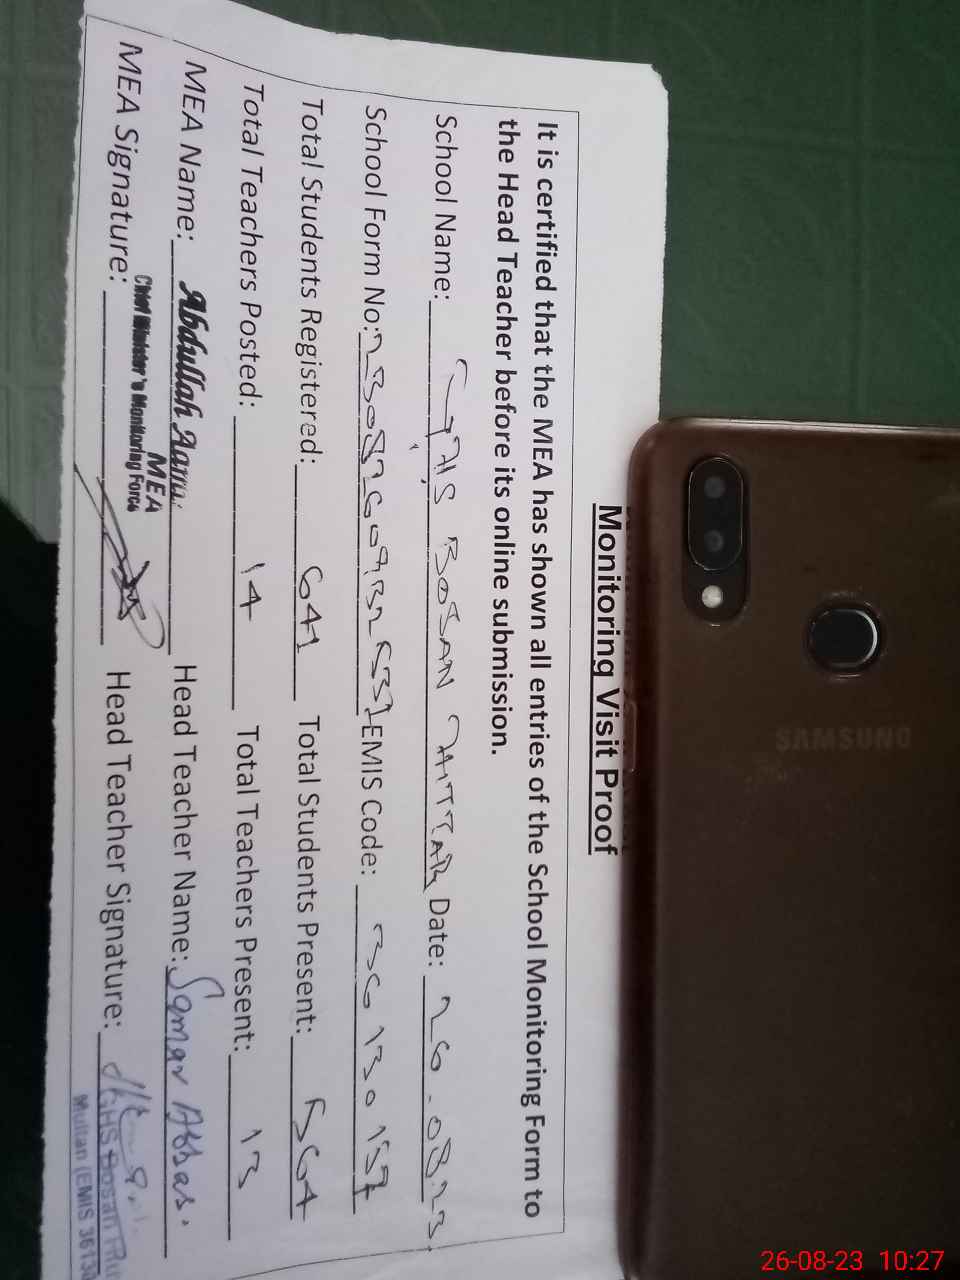 Monitoring Visit Proof
It is certified that the MEA has shown all entries of the School Monitoring Form to
the Head Teacher before its online submission.
School Name: GHS BOSAN Date: 26-08-23
School Form No: EMIS Code: 36130157
Total Students Registered: 641 Total Students Present: 564
Total Teachers Posted: 14 Total Teachers Present: 13
MEA Name: Abdullah Head Teacher Name: Samar Abbas.
MEA
Chief Minister's Monitoring Force
MEA Signature: Head Teacher Signature:
GHS Bosan
Multan (EMIS 3613
SAMSUNG
26-08-23 10:27